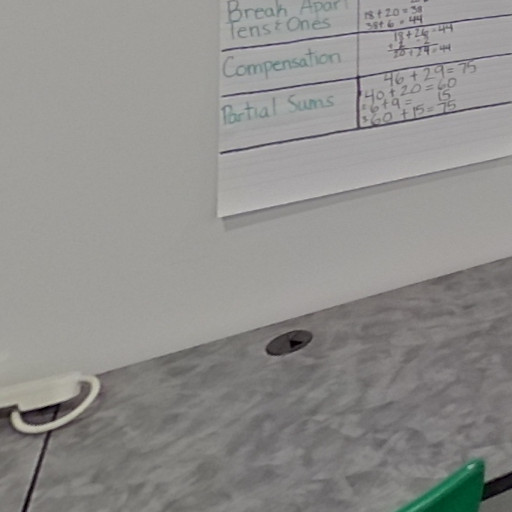 Break Apart
Tens & Ones
18 + 20 = 38
38 + 6 = 44
Compensation
18 + 26 = 44
20 + 24 = 44
Partial Sums
46 + 29 = 75
40 + 20 = 60
6 + 9 = 15
60 + 15 = 75